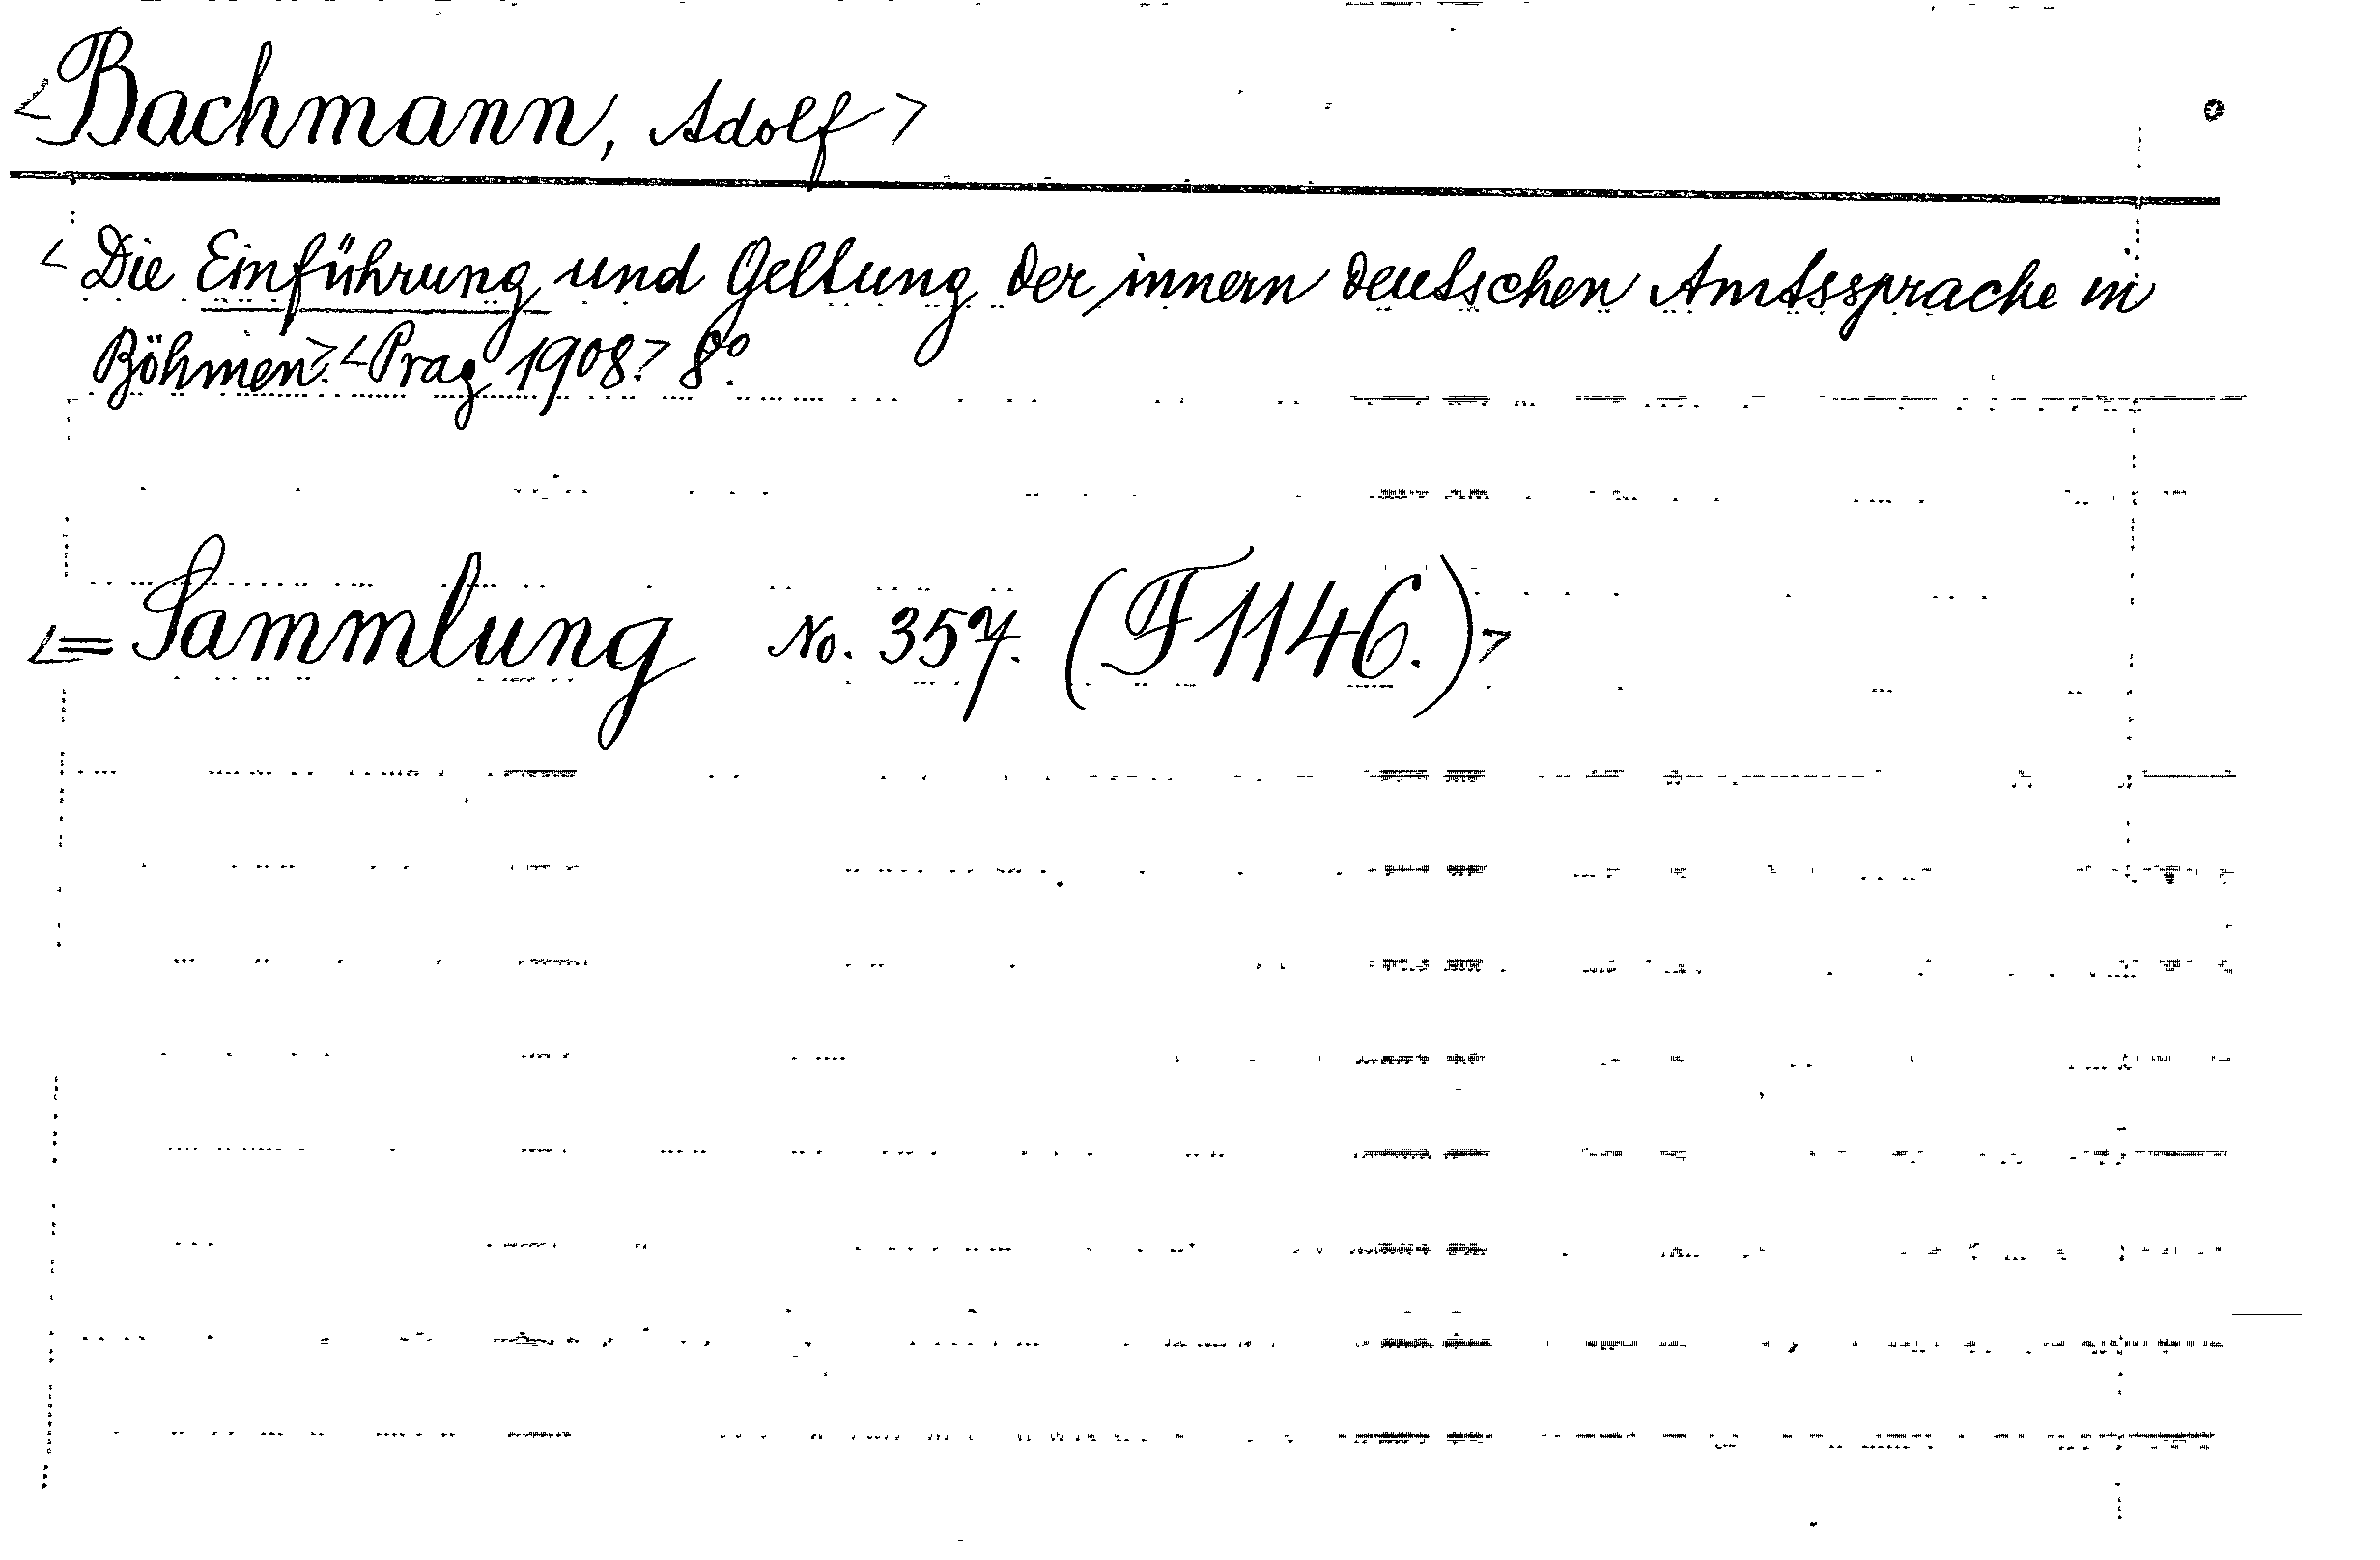 <Bachmann, Adolf>
<Die Einführung und Geltung der innern deutschen Amtssprache in
Böhmen.> <Prag 1908.> 8º.
<= Sammlung No. 357. (F 1146.)>